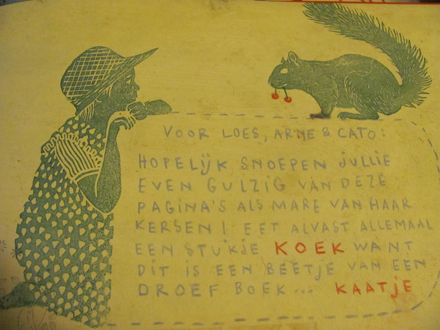 VOOR LOES, ARNE & CATO:
HOPELIJK SNOEPEN JULLIE
EVEN GULZIG VAN DEZE
PAGINA'S ALS MARE VAN HAAR
KERSEN! EET ALVAST ALLEMAAL
EEN STUKJE KOEK WANT
DIT IS EEN BEETJE VAN EEN
DROEF BOEK... KAATJE